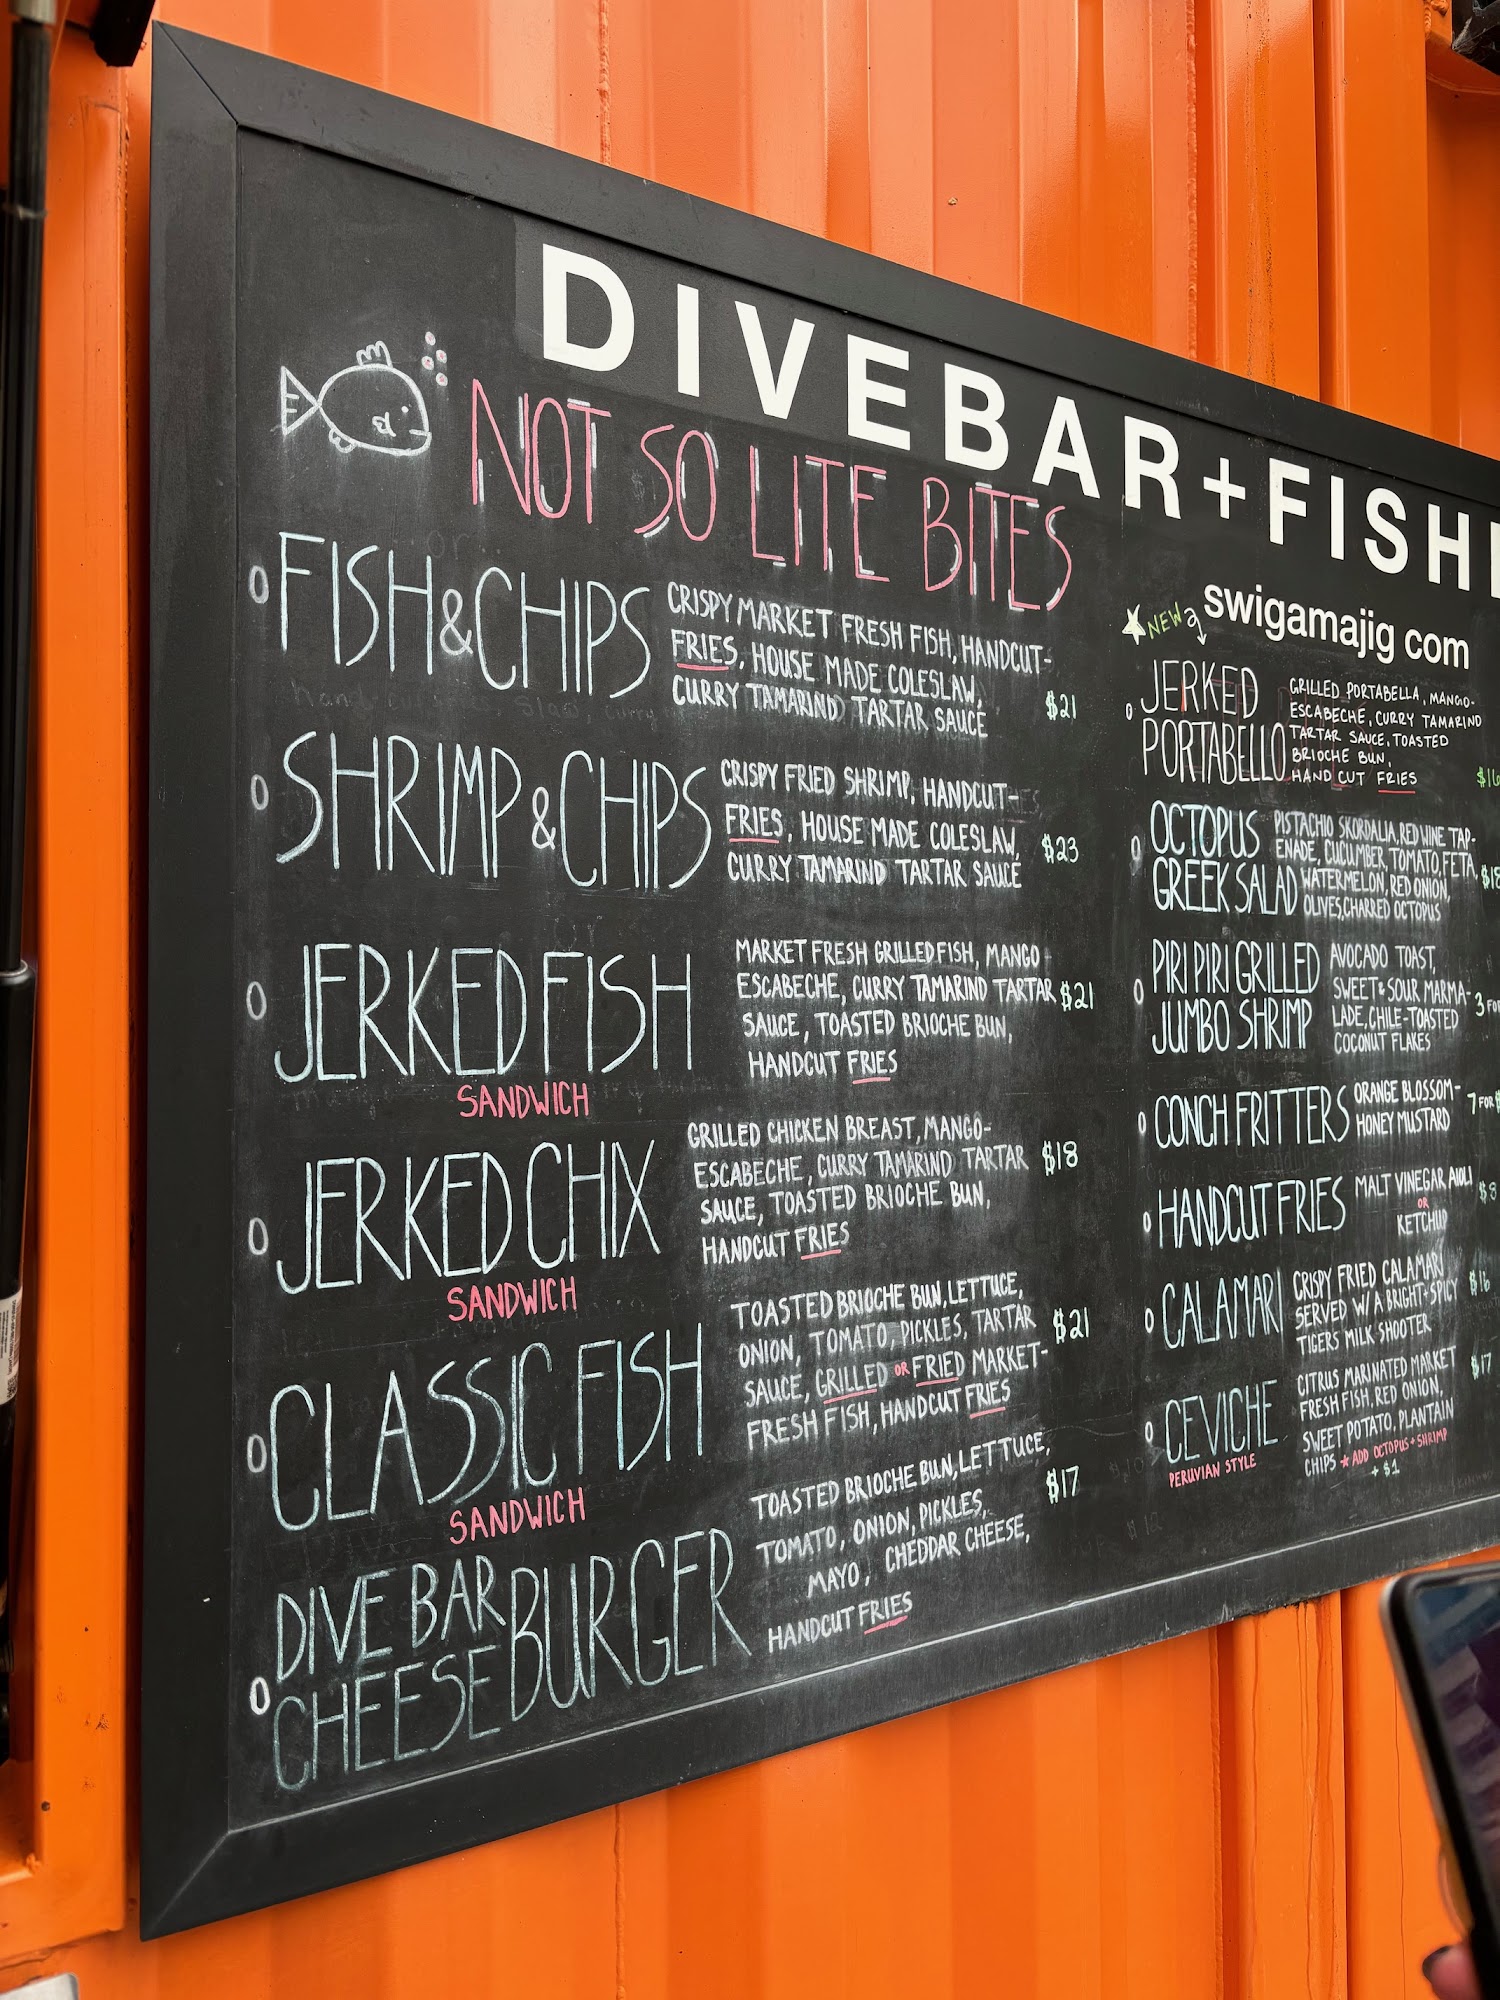 DIVEBAR+FISH
swigamajig com
NOT SO LITE BITES
FISH & CHIPS
CRISPY MARKET FRESH FISH, HANDCUT-
FRIES, HOUSE MADE COLESLAW,
CURRY TAMARIND TARTAR SAUCE
$21
SHRIMP & CHIPS
CRISPY FRIED SHRIMP, HANDCUT-
FRIES, HOUSE MADE COLESLAW,
CURRY TAMARIND TARTAR SAUCE
$23
JERKED FISH
SANDWICH
MARKET FRESH GRILLED FISH, MANGO-
ESCABECHE, CURRY TAMARIND TARTAR
SAUCE, TOASTED BRIOCHE BUN,
HANDCUT FRIES
$21
JERKED CHIX
SANDWICH
GRILLED CHICKEN BREAST, MANGO-
ESCABECHE, CURRY TAMARIND TARTAR
SAUCE, TOASTED BRIOCHE BUN,
HANDCUT FRIES
$18
CLASSIC FISH
SANDWICH
TOASTED BRIOCHE BUN, LETTUCE,
ONION, TOMATO, PICKLES, TARTAR
SAUCE, GRILLED OR FRIED MARKET-
FRESH FISH, HANDCUT FRIES
$21
DIVE BAR
CHEESE BURGER
TOASTED BRIOCHE BUN, LETTUCE,
TOMATO, ONION, PICKLES,
MAYO, CHEDDAR CHEESE,
HANDCUT FRIES
$17
NEW
JERKED
PORTABELLO
GRILLED PORTABELLA, MANGO-
ESCABECHE, CURRY TAMARIND
TARTAR SAUCE, TOASTED
BRIOCHE BUN,
HAND CUT FRIES
$16
OCTOPUS
GREEK SALAD
PISTACHIO SKORDALIA, RED WINE TAP-
ENADE, CUCUMBER, TOMATO, FETA,
WATERMELON, RED ONION,
OLIVES, CHARRED OCTOPUS
$18
PIRI PIRI GRILLED
JUMBO SHRIMP
AVOCADO TOAST,
SWEET & SOUR MARMA-
LADE, CHILE-TOASTED
COCONUT FLAKES
3 FOR
CONCH FRITTERS
ORANGE BLOSSOM-
HONEY MUSTARD
7 FOR $
HANDCUT FRIES
MALT VINEGAR AIOLI
OR
KETCHUP
$8
CALAMARI
CRISPY FRIED CALAMARI
SERVED W/ A BRIGHT + SPICY
TIGERS MILK SHOOTER
$16
CEVICHE
PERUVIAN STYLE
CITRUS MARINATED MARKET
FRESH FISH, RED ONION,
SWEET POTATO, PLANTAIN
CHIPS ★ ADD OCTOPUS + SHRIMP
+ $1
$17